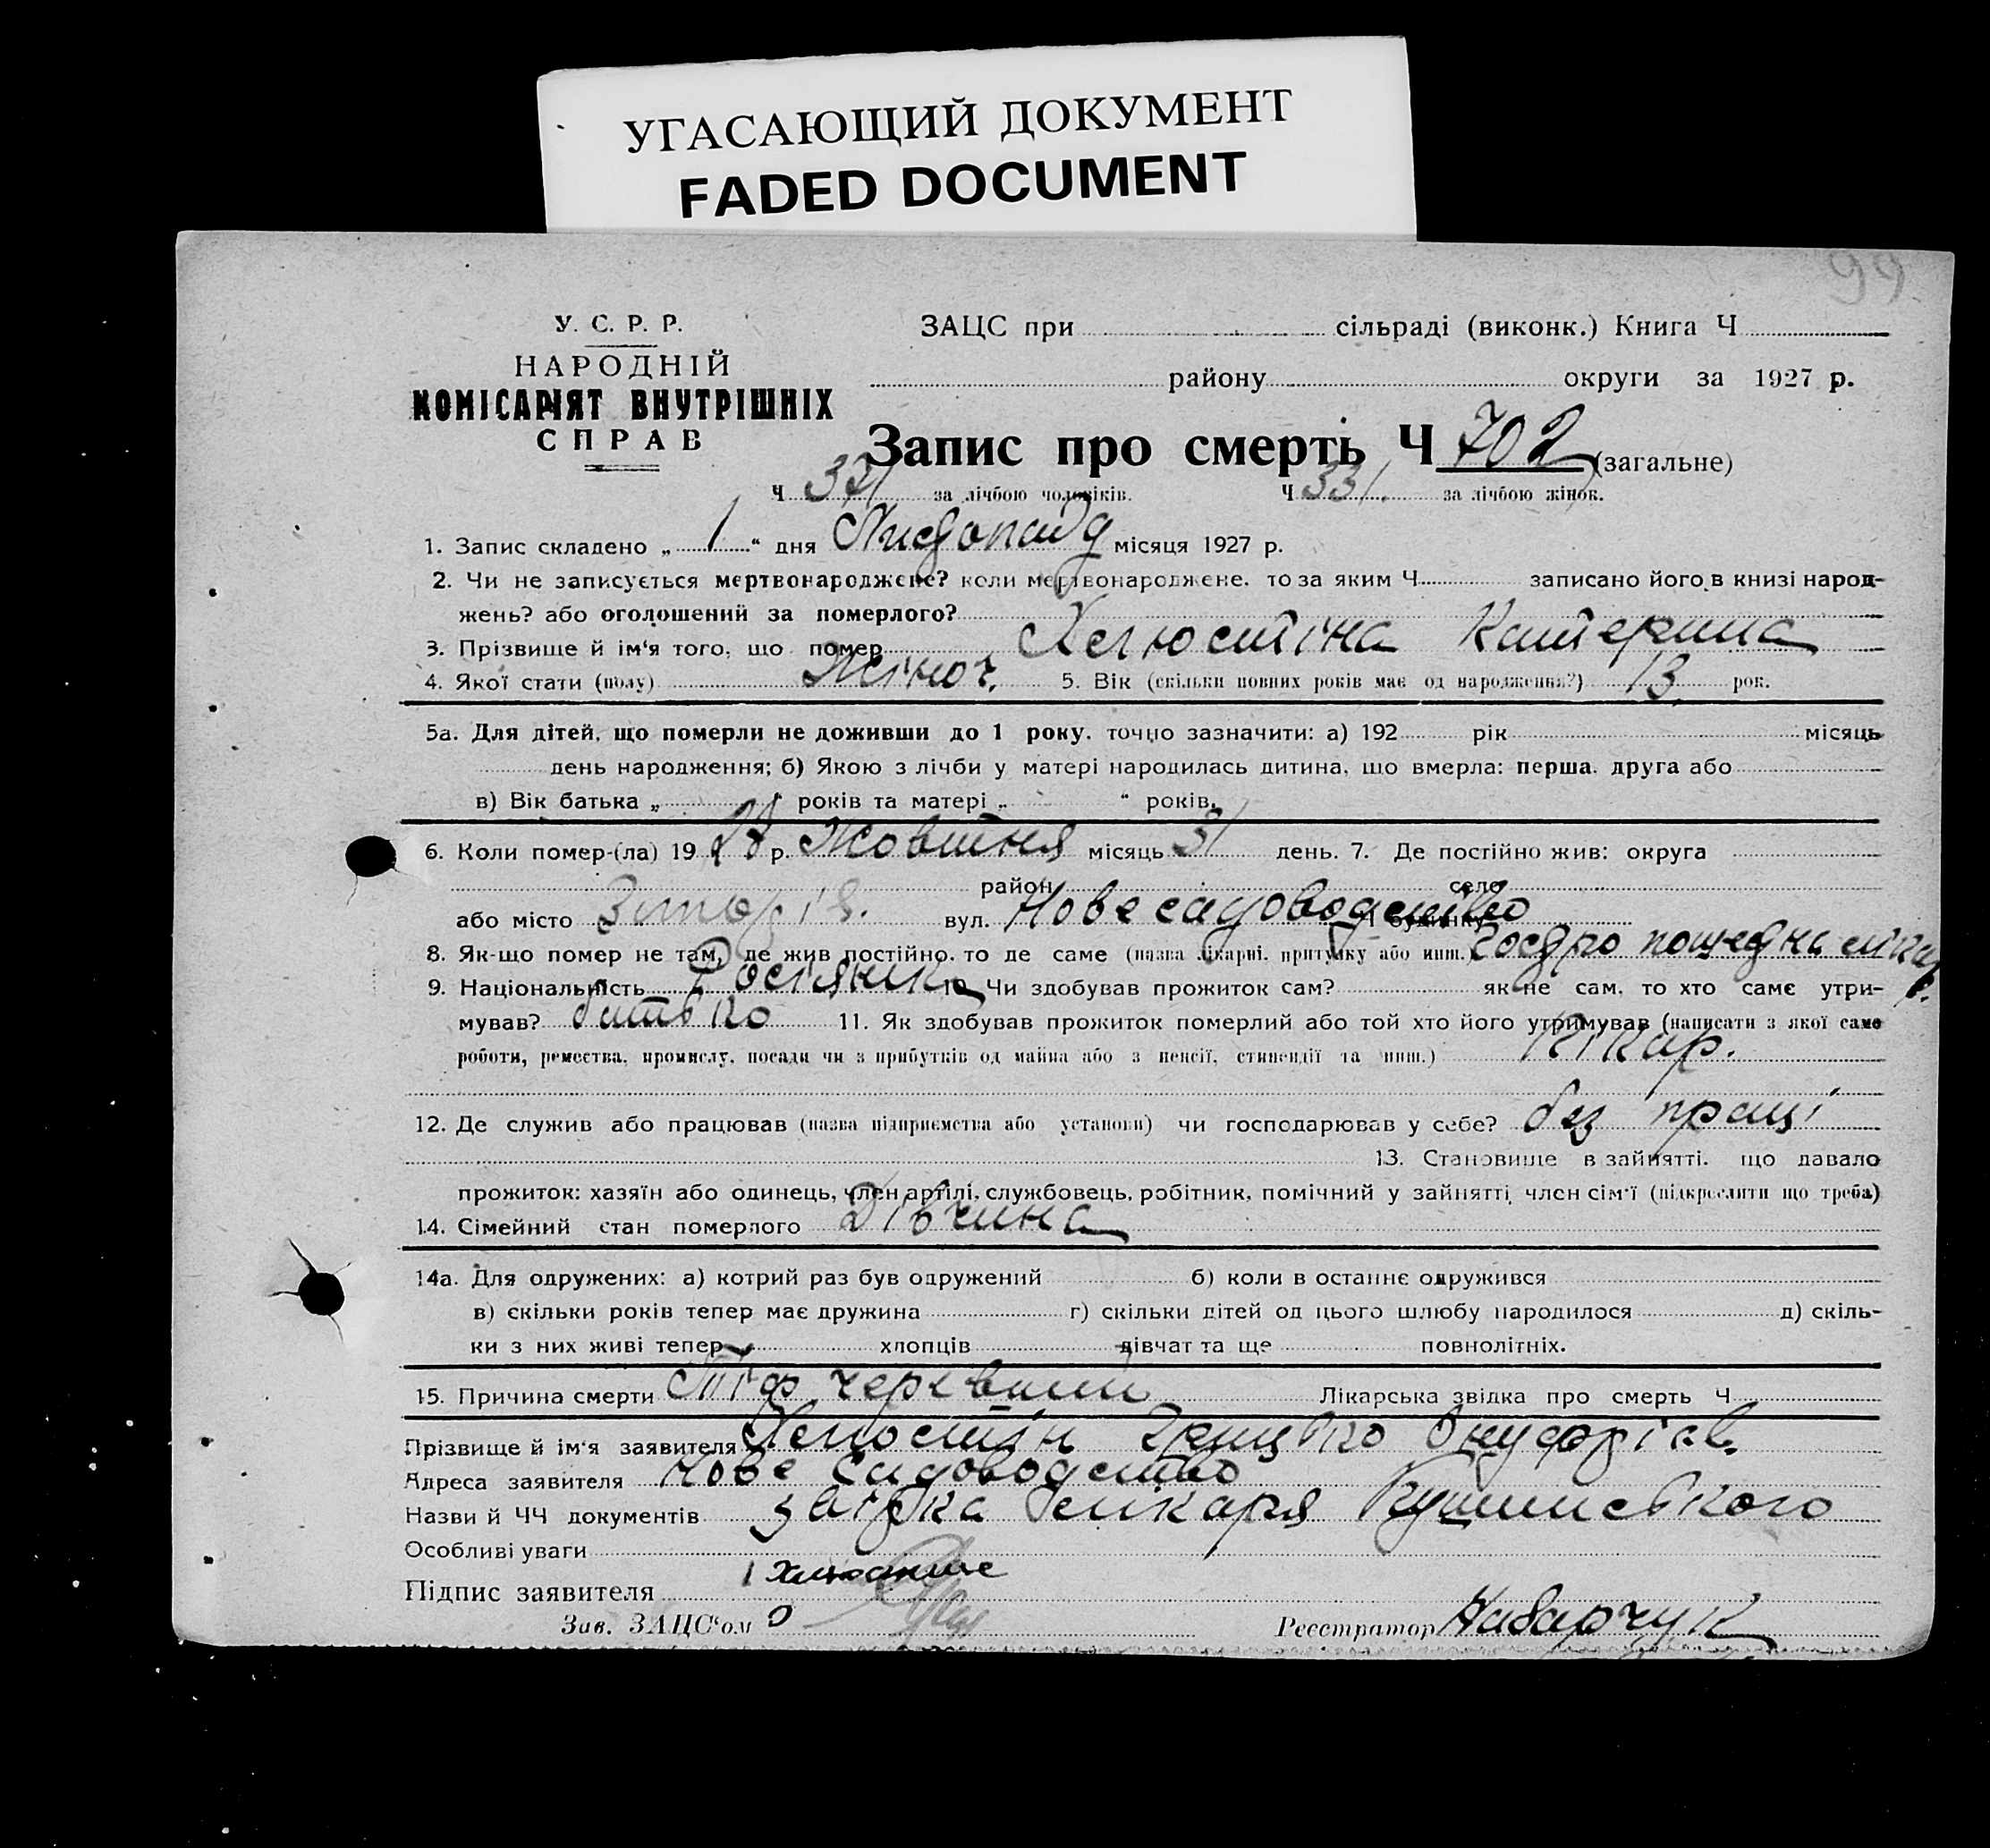 УГАСАЮЩИЙ ДОКУМЕНТ
FADED DOCUMENT
99
У. С. Р. Р.
НАРОДНІЙ
КОМІСАРІЯТ ВНУТРІШНІХ
СПРАВ
ЗАЦС при сільраді (виконк.) Книга Ч
району округи за 1927 р.
Запис про смерть Ч 702 (загальне)
Ч 371 за лічбою чоловіків. Ч 331. за лічбою жінок.
1. Запис складено „ 1 “ дня Листопада місяця 1927 р.
2. Чи не записується мертвонароджене? коли мертвонароджене, то за яким Ч записано його в книзі народ-
жень? або оголошений за померлого?
3. Прізвище й ім'я того, що помер Хлюстіна Катерина
4. Якої стати (полу) Жіноч. 5. Вік (скільки повних років має од народження?) 13 рок.
5а. Для дітей, що померли не доживши до 1 року, точно зазначити: а) 192 рік місяць
день народження; б) Якою з лічби у матері народилась дитина, що вмерла: перша, друга або
в) Вік батька „ “ років та матері „ “ років.
6. Коли помер-(ла) 19 27 р. Жовтня місяць 31 день. 7. Де постійно жив: округа
район село
або місто вул. Нове садоводство Ч будинку
8. Як-що помер не там, де жив постійно, то де саме (назва лікарні, притулку або инш.)
9. Національність Росіянка 10. Чи здобував прожиток сам? як не сам, то хто саме утри-
мував? батько 11. Як здобував прожиток померлий або той хто його утримував (написати з якої саме
роботи, ремества, промислу, посади чи з прибутків од майна або з пенсії, стипендії та инш.)
12. Де служив або працював (назва підприємства або установи) чи господарював у себе? без праці
13. Становище в зайнятті, що давало
прожиток: хазяїн або одинець, член артілі, службовець, робітник, помічний у зайнятті, член сім'ї (підкреслити що треба)
14. Сімейний стан померлого Дівчина
14а. Для одружених: а) котрий раз був одружений б) коли в останнє одружився
в) скільки років тепер має дружина г) скільки дітей од цього шлюбу народилося д) скіль-
ки з них живі тепер хлопців дівчат та ще повнолітніх.
15. Причина смерти Тіф черевний Лікарська звідка про смерть Ч
Прізвище й ім'я заявителя Хлюстін Грицько Онуфріев.
Адреса заявителя Нове садоводство
Назви й ЧЧ документів звідка лікаря
Особливі уваги
Підпис заявителя
Зав. ЗАЦС'ом Реєстратор